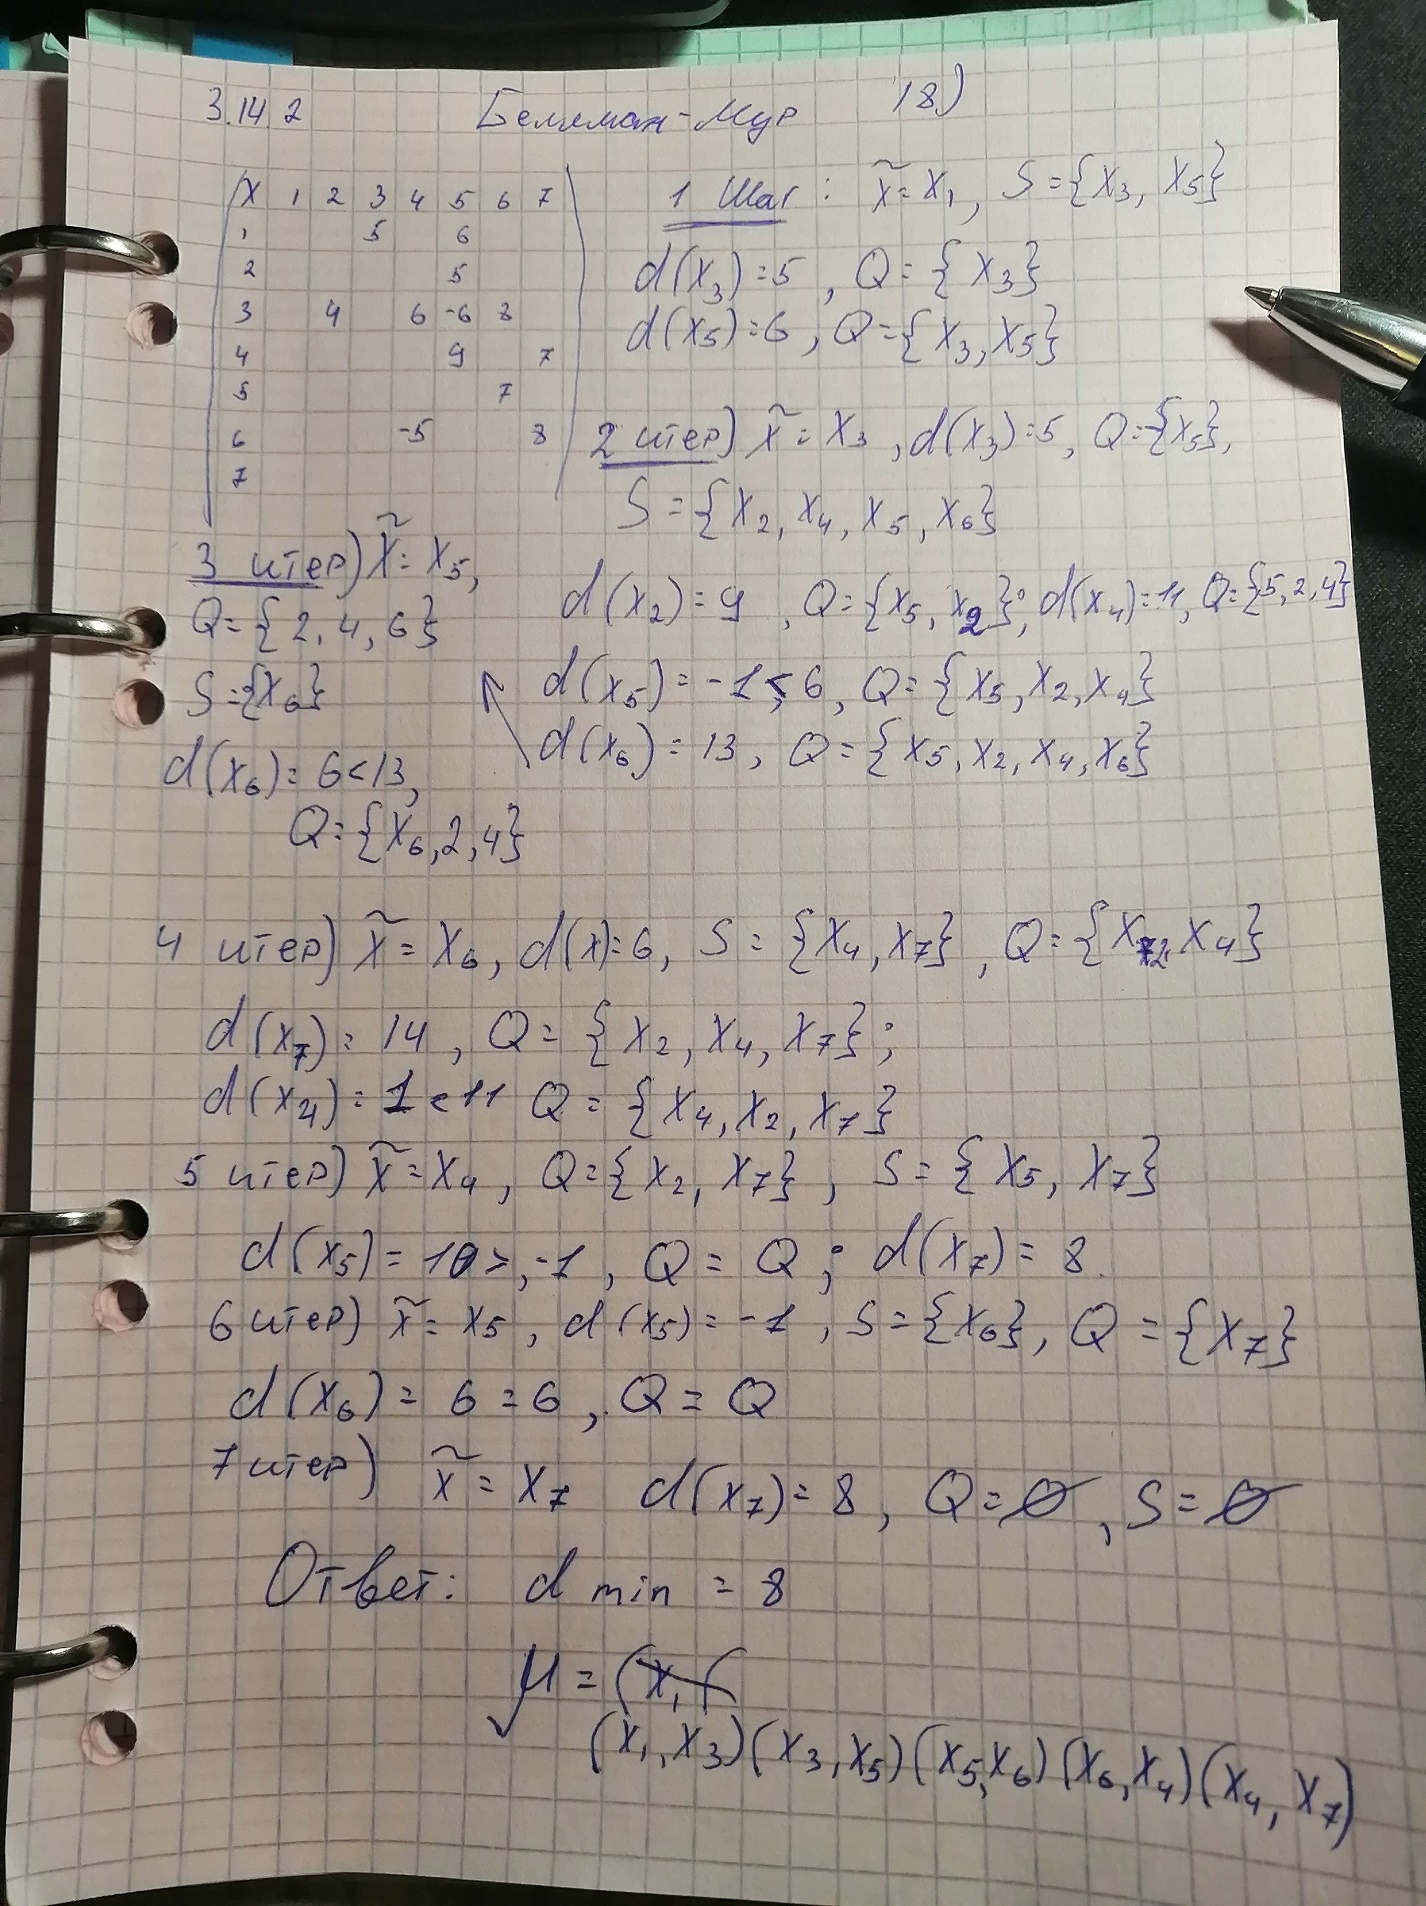 3.14.2 Беллман-Мур 18)
X 1 2 3 4 5 6 7
1 5 6
2 5
3 4 6 -6 8
4 9 7
5 7
6 -5 8
7
1 Шаг: x̃ = X₁, S = {X₃, X₅}
d(X₃) = 5, Q = {X₃}
d(X₅) = 6, Q = {X₃, X₅}
2 итер) x̃ = X₃, d(X₃) = 5, Q = {X₅},
S = {X₂, X₄, X₅, X₆}
d(X₂) = 9, Q = {X₅, X₂}; d(X₄) = 11, Q = {5, 2, 4}
d(X₅) = -1 < 6, Q = {X₅, X₂, X₄}
d(X₆) = 13, Q = {X₅, X₂, X₄, X₆}
3 итер) x̃ = X₅,
Q = {2, 4, 6}
S = {X₆}
d(X₆) = 6 < 13,
Q = {X₆, 2, 4}
4 итер) x̃ = X₆, d(x) = 6, S = {X₄, X₇}, Q = {X₂, X₄}
d(X₇) = 14, Q = {X₂, X₄, X₇};
d(X₄) = 1 < 11 Q = {X₄, X₂, X₇}
5 итер) x̃ = X₄, Q = {X₂, X₇}, S = {X₅, X₇}
d(X₅) = 10 > -1, Q = Q; d(X₇) = 8
6 итер) x̃ = X₅, d(X₅) = -1, S = {X₆}, Q = {X₇}
d(X₆) = 6 = 6, Q = Q
7 итер) x̃ = X₇ d(X₇) = 8, Q = ∅, S = ∅
Ответ: d min = 8
μ = (X₁ (
(X₁, X₃)(X₃, X₅)(X₅, X₆)(X₆, X₄)(X₄, X₇)